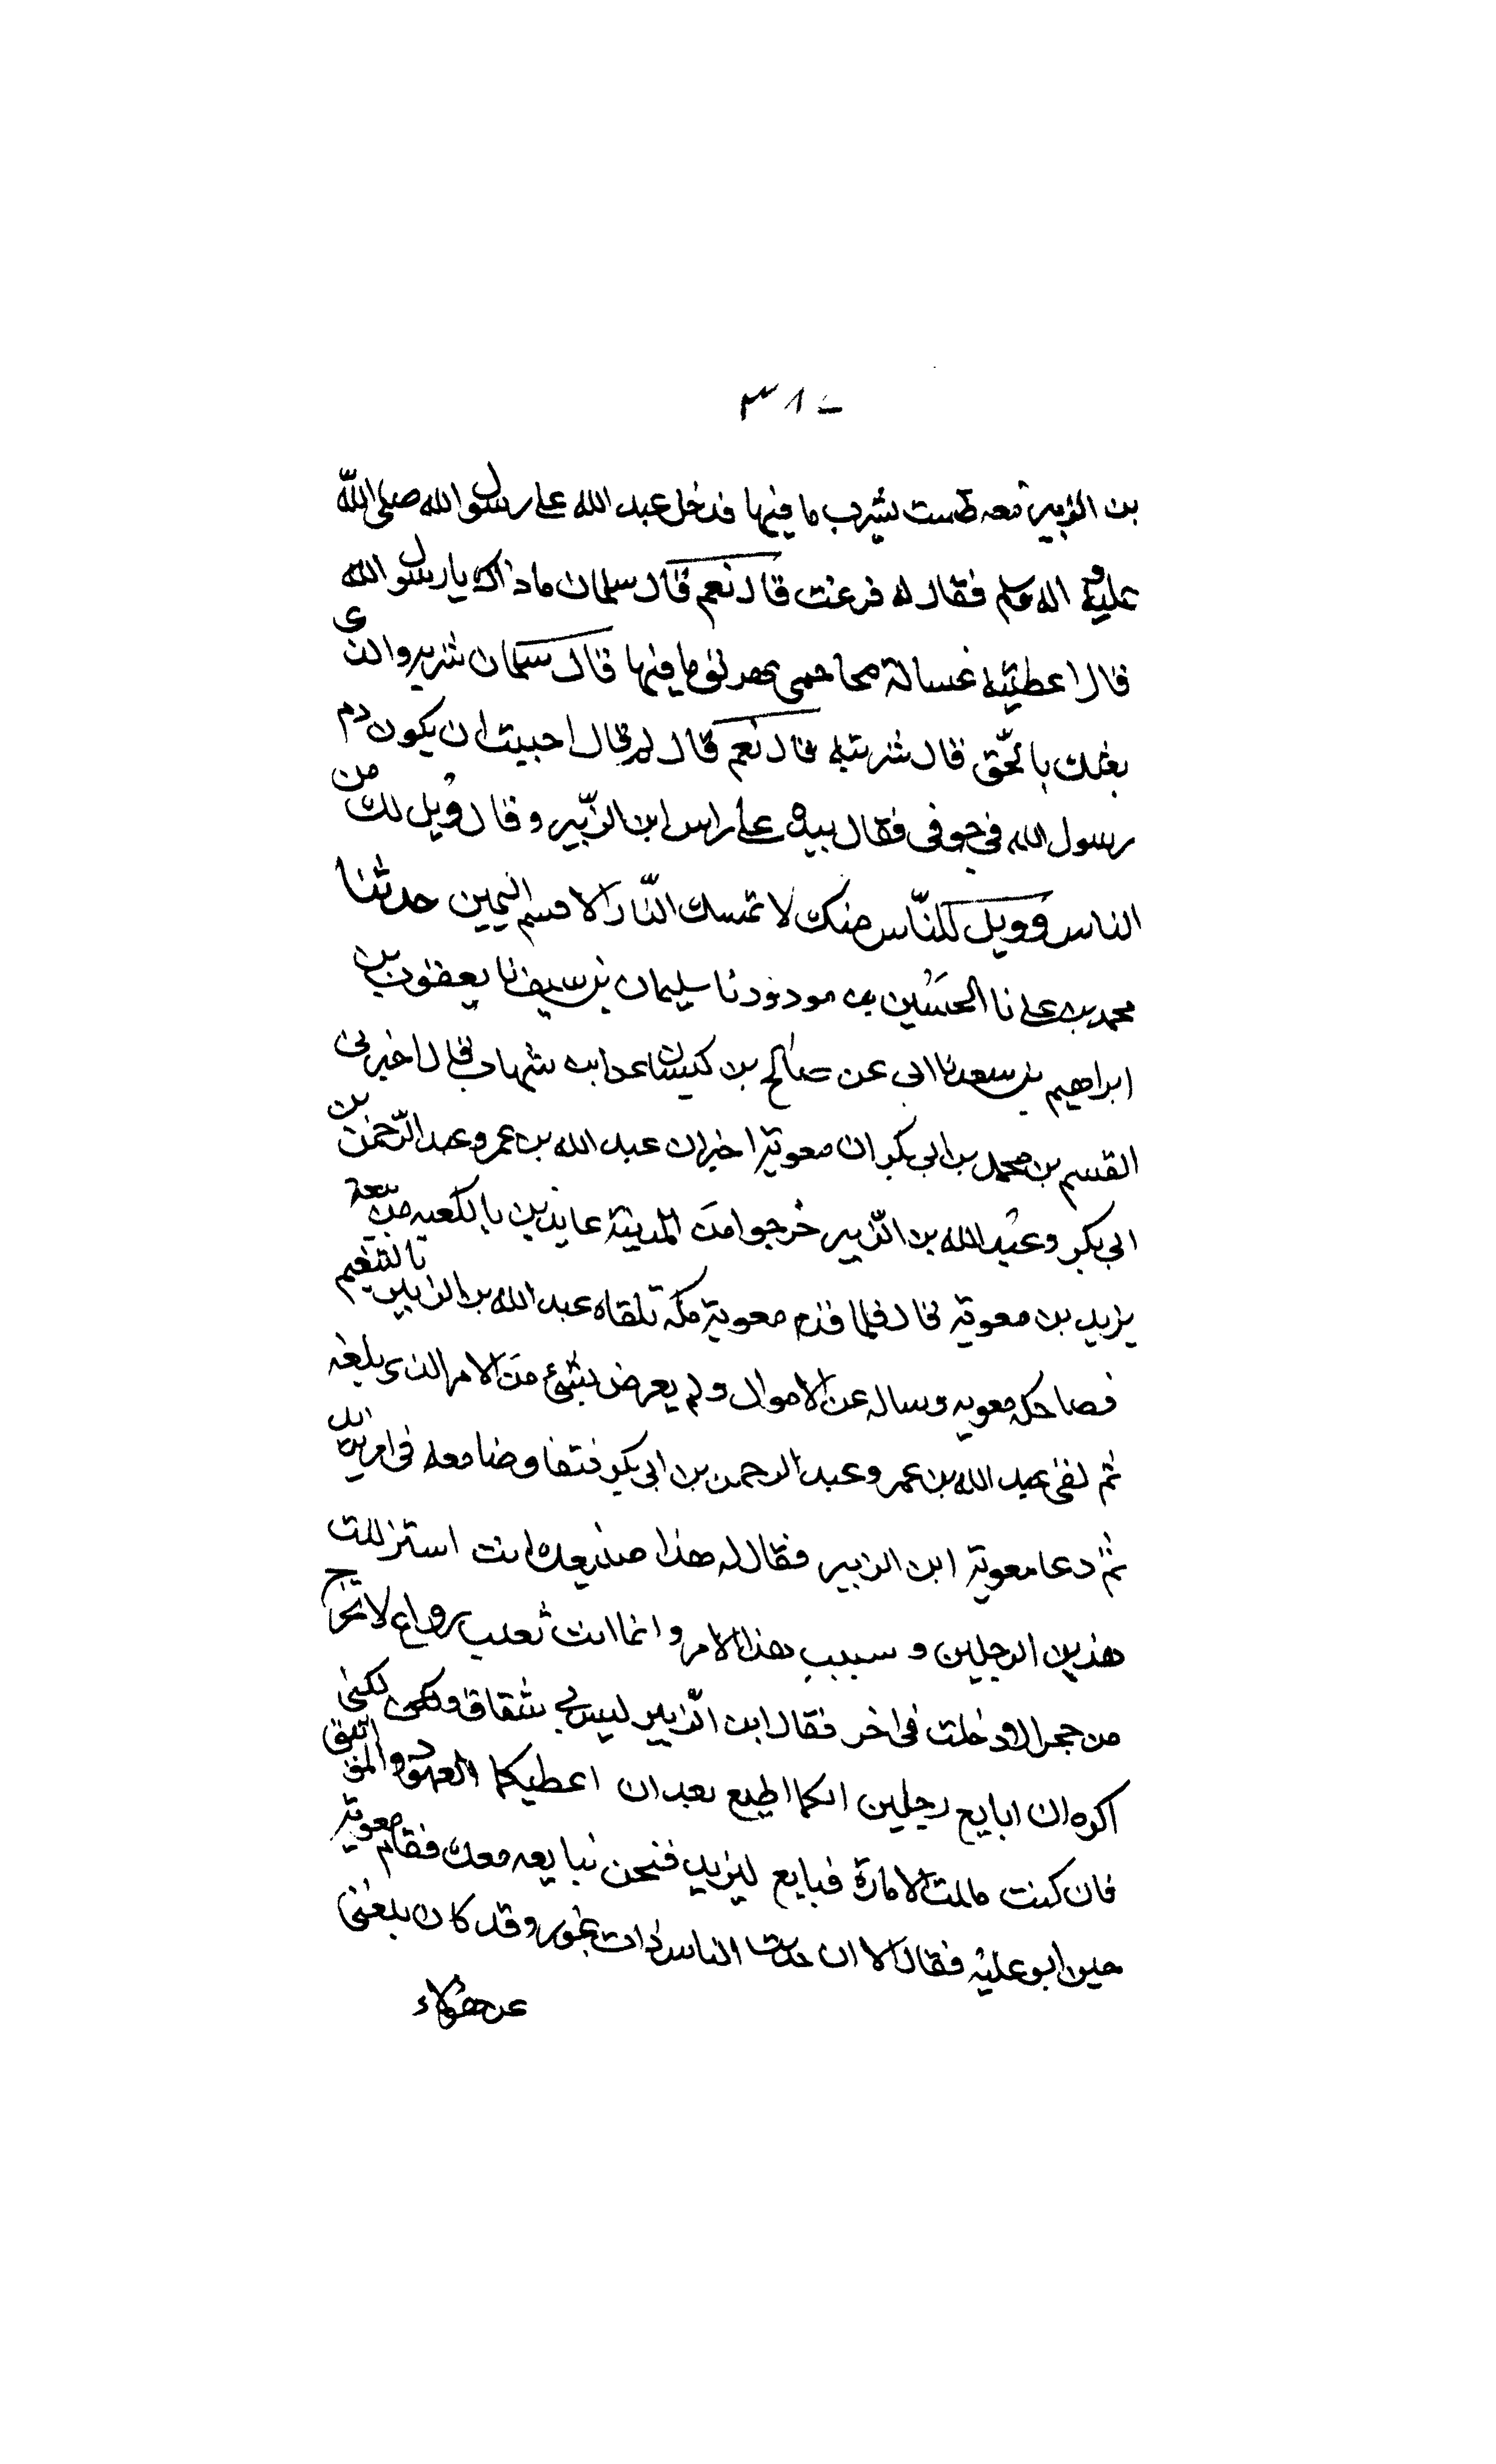 ٣٨٠
بن الزبير معه طست يشرب ما فيها فدخل عبد الله على رسول الله صلى الله
عليه و اله وسلم فقال له فرغت قال نعم قال سلمان ما ذاك يا رسول الله
قال اعطيته غسالة محاجمى يهريق ما فيها قال سلمان شربه والذى
بعثك بالحق قال شربته قال نعم قال لم قال احببت ان يكون دم
رسول الله فى جوفى فقال بيده على راس ابن الزبير و قال ويل لك من
الناس وويل للناس منك لا تمسك النار الا قسم اليمين حدثنا
محمد بن على نا الحسين بن مودود نا سليمان بن سيف نا يعقوب بن
ابراهيم بن سعد نا ابى عن صالح بن كيسان عن ابن شهاب قال اخبرنى
القسم بن محمد بن ابى بكر ان معوية اخبر ان عبد الله بن عمر وعبد الرحمن بن
ابى بكر و عبد الله بن الزبير خرجوا من المدينة عايذين بالكعبه من بيعة
يزيد بن معوية قال فلما قدم معوية مكة تلقاه عبد الله بن الزبير بالتنعيم
فضاحكه معويه وساله عن الاموال ولم يعرض بشئ من الامر الذى بلغه
ثم لقى عبد الله بن عمر وعبد الرحمن بن ابى بكر فتفاوضا معه فى امر يزيد
ثم دعا معوية ابن الزبير فقال له هذا صنيعك انت استزللت
هذين الرجلين و سببب هذا الامر و انما انت ثعلب رواغ لا تخرج
من حجر الا دخلت فى اخر فقال ابن الزبير ليس بى شقاق ولكن لكنى
اكره ان ابايع رجلين ايكما اطيع بعد ان اعطيكما العهود والمواثيق
فان كنت مللت الامارة فبايع ليزيد فنحن نبايعه معك فقام معوية
حين ابو عليه فقال الا ان حديث الناس ذات عور وقد كان بلغنى
عن هؤلاء